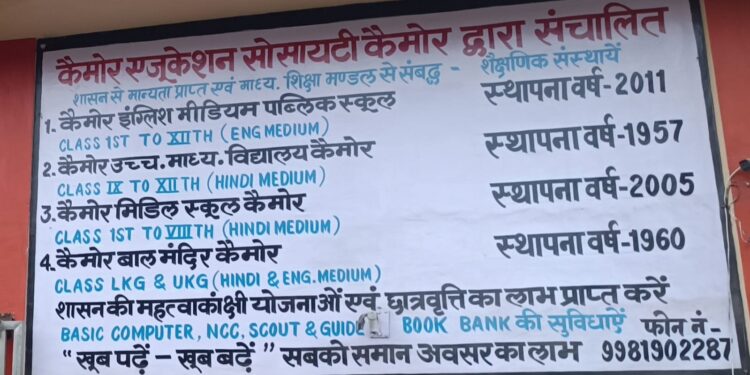 कैमोर एजूकेशन सोसायटी कैमोर द्वारा संचालित
शासन से मान्यता प्राप्त एवं माध्य. शिक्षा मण्डल से संबद्ध - शैक्षणिक संस्थायें
1. कैमोर इंग्लिश मीडियम पब्लिक स्कूल स्थापना वर्ष-2011
CLASS 1ST TO XIITH (ENG MEDIUM)
2. कैमोर उच्च. माध्य. विद्यालय कैमोर स्थापना वर्ष-1957
CLASS IX TO XII TH (HINDI MEDIUM)
3. कैमोर मिडिल स्कूल कैमोर स्थापना वर्ष-2005
CLASS 1ST TO VIIITH (HINDI MEDIUM)
4. कैमोर बाल मंदिर कैमोर स्थापना वर्ष-1960
CLASS LKG & UKG (HINDI & ENG.MEDIUM)
शासन की महत्वाकांक्षी योजनाओं एवं छात्रवृत्ति का लाभ प्राप्त करें
BASIC COMPUTER, NCC, SCOUT & GUIDE BOOK BANK की सुविधाऐं फोन नं-
"खूब पढ़ें - खूब बढ़ें" सबको समान अवसर का लाभ 9981902287